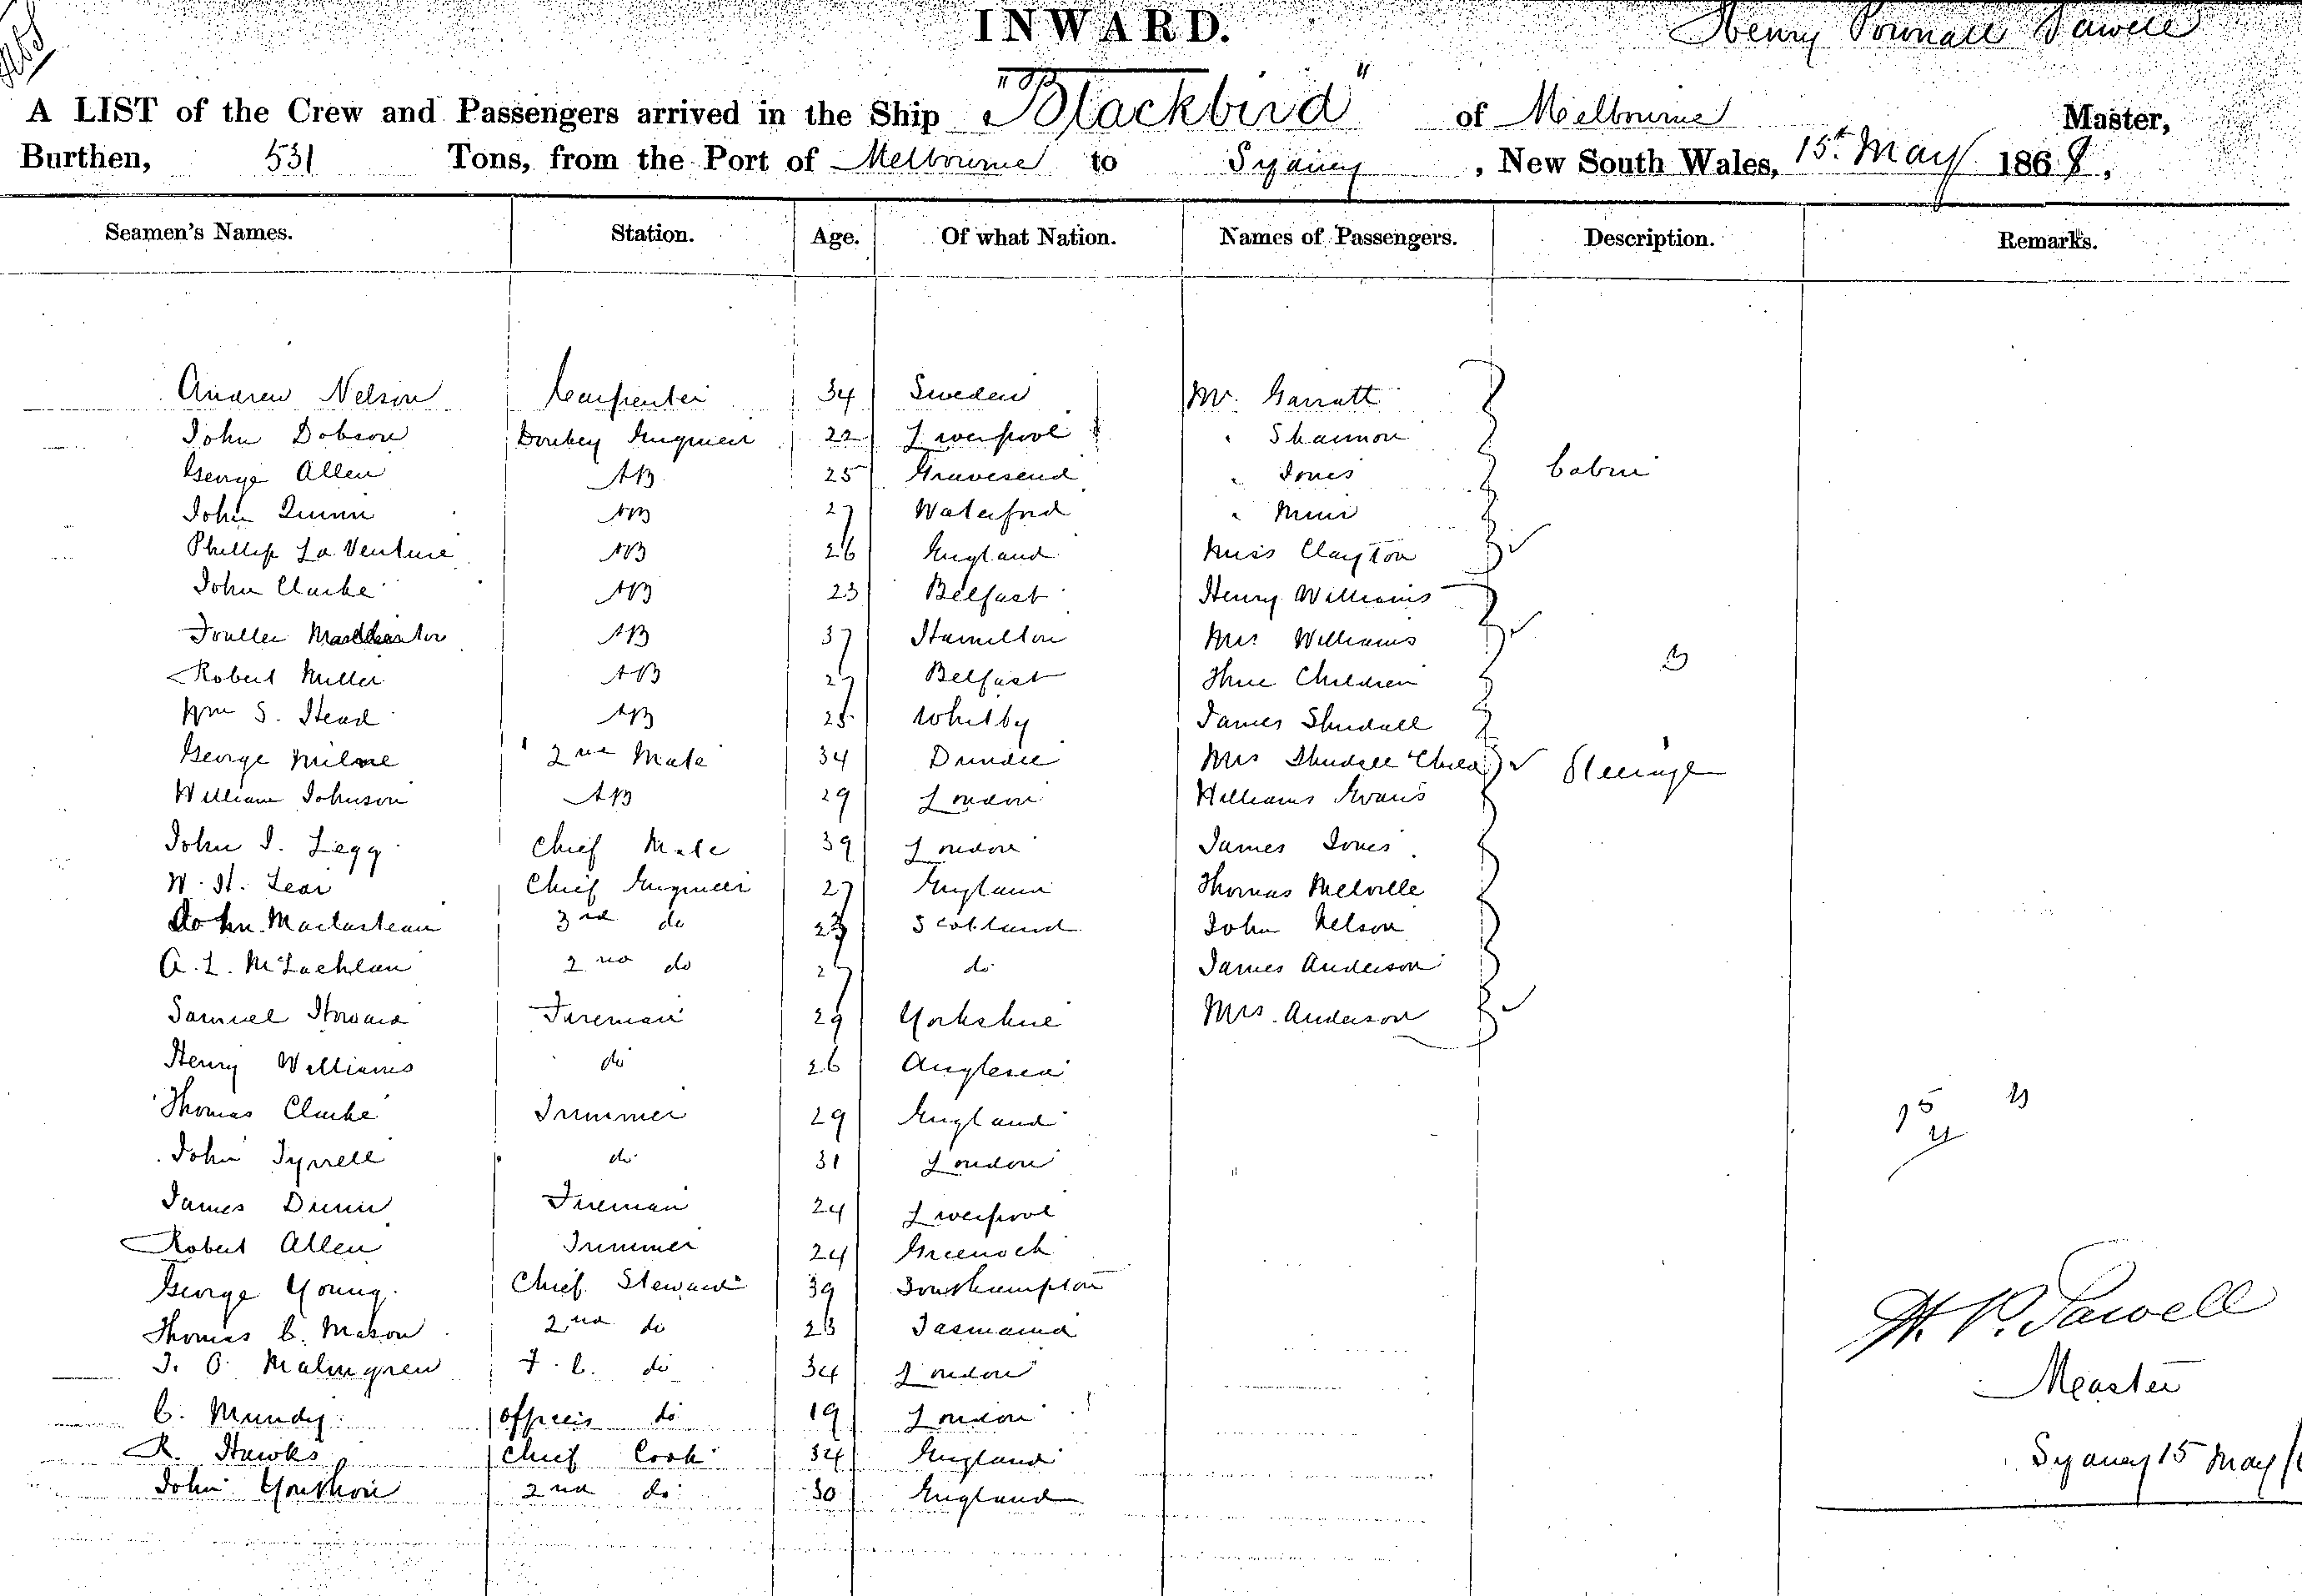 INWARD.
Henry Pownall Sawell
A LIST of the Crew and Passengers arrived in the Ship "Blackbird" of Melbourne Master,
Burthen, 531 Tons, from the Port of Melbourne to Sydney, New South Wales, 15th May 1868,
Seamen's Names. Station. Age. Of what Nation. Names of Passengers. Description. Remarks.
Andrew Nelson Carpenter 34 Sweden Mr. Garratt
John Dobson Donkey Engineer 22 Liverpool " Shannon
George Allen AB 25 Gravesend " Jones Cabin
John Quinn AB 27 Waterford " Muir
Phillip La Venture AB 26 England Miss Clayton
John Clarke AB 23 Belfast Henry Williams
AB 37 Hamilton Mrs Williams
Robert Miller AB 27 Belfast Three Children
Wm S. Head AB 25 Whitby James
George Milne 2nd Mate 34 Dundee Mrs Child Steerage
William Johnson AB 29 London Williams Evans
John J. Legg Chief Mate 39 London James Jones
W. H. Lear Chief Engineer 27 England Thomas Melville
John 3rd do 23 Scotland John Nelson
A. L. McLachlan 2nd do 27 do James Anderson
Samuel Howard Fireman 29 Yorkshire Mrs. Anderson
Henry Williams do 26 Anglesea
Thomas Clarke Trimmer 29 England
John Tyrrell do 31 London
James Dunn Fireman 24 Liverpool
Robert Allen Trimmer 24 Greenock
George Young Chief Steward 39 Southampton
Thomas C. Mason 2nd do 23 Tasmania
J. O. Malmgren F. C. do 34 London
C. Mundy Officers do 19 London
R. Hawks Chief Cook 34 England
John 2nd do 30 England
H. P. Sawell
Master
Sydney 15 May